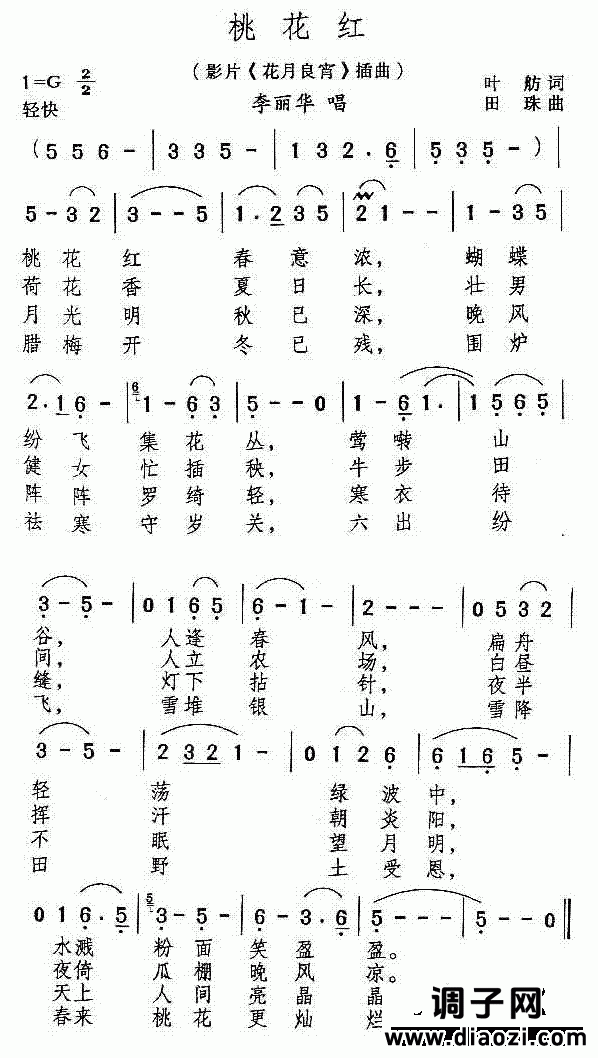 桃花红
(影片《花月良宵》插曲)
1=G 2/2
叶舫词
轻快
李丽华 唱
田珠曲
(5 5 6 - | 3 3 5 - | 1 3 2 . 6 | 5 3 5 - )
5 - 3 2 | 3 - - 5 | 1 . 2 3 5 | 2 1 - - | 1 - 3 5
桃花红 春意浓, 蝴蝶
荷花香 夏日长, 壮男
月光明 秋已深, 晚风
腊梅开 冬已残, 围炉
2 . 1 6 - | 6 1 - 6 3 | 5 - - 0 | 1 - 6 1 . | 1 5 6 5
纷飞集花丛, 莺啭山
健女忙插秧, 牛步田
阵阵罗绮轻, 寒衣待
祛寒守岁关, 六出纷
3 - 5 - | 0 1 6 5 | 6 - 1 - | 2 - - - | 0 5 3 2
谷, 人逢春风, 扁舟
间, 人立农场, 白昼
缝, 灯下拈针, 夜半
飞, 雪堆银山, 雪降
3 - 5 - | 2 3 2 1 - | 0 1 2 6 | 6 1 6 5 -
轻荡 绿波中,
挥汗 朝炎阳,
不眠 望月明,
田野 土受恩,
0 1 6 . 5 | 5 3 - 5 - | 6 - 3 . 6 | 5 - - - | 5 - - 0
水溅粉面笑盈盈。
夜倚瓜棚晚风凉。
天上人间亮晶晶
春来桃花更灿烂
调子网
www.diaozi.com